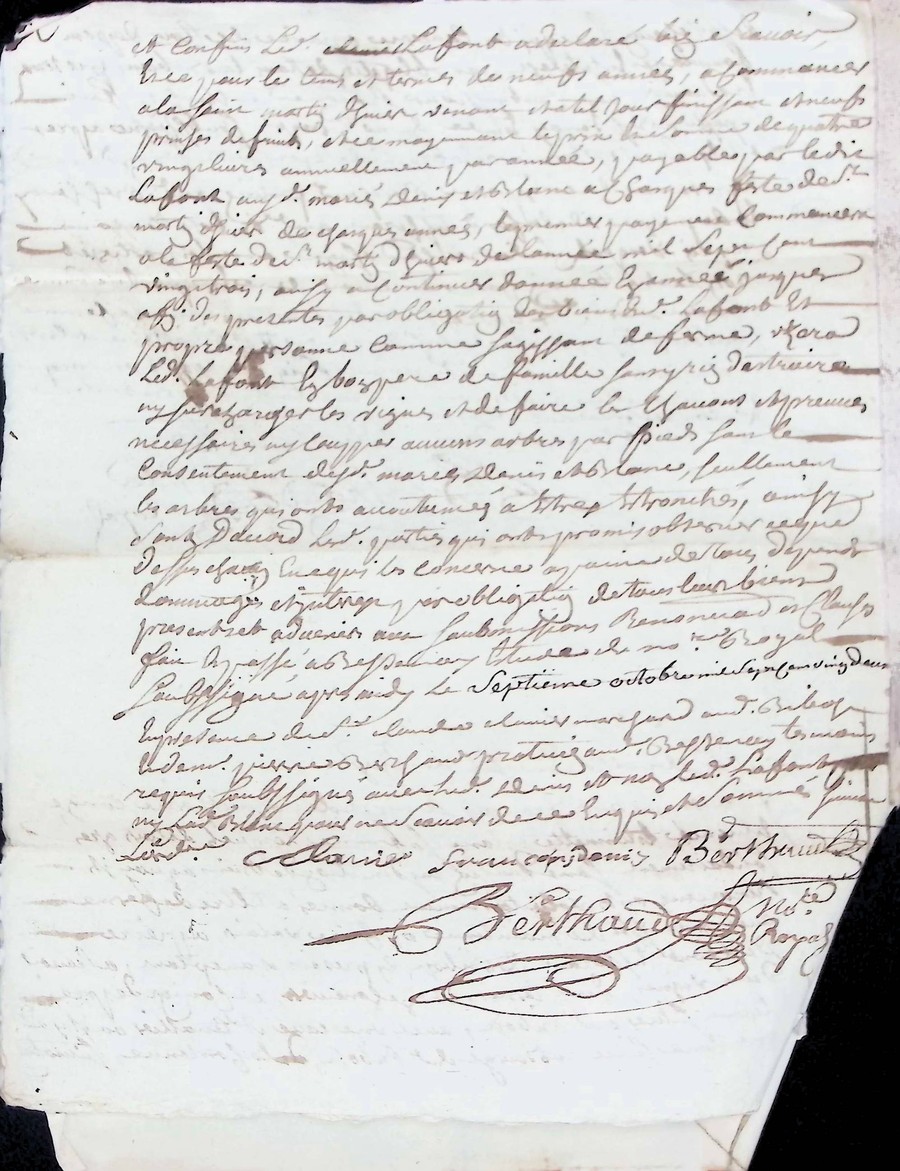 et confins led. Lafont a declaré bie Scavoir,
et ce pour le tems et termes de neufs années, a Commancer
a la Saint marti dhiver venant et a tel jour finissant et neufs
prinses de fruits, et ce moyennant le prix et Somme de quatre
vingts livres annuellement par année, payables par ledit
Lafont aux d. mariés denis et Blanc a Chasques feste de St
marti dhiver de chasques années, le premier payement Commancera
a la feste de St marti dhivers de lannée mil Sept Cent
vingt trois, ainsy a Continuer dannée En année jusques
aff. des presentes par obligatio des biens du d. Lafont Et
propre personne Comme jouissant de ferme, usera
Led. Lafont En bon pere de famille sans y rien detruire
ny surcharger les vignes et de faire le et preuves
necessaires ny Coupper aucuns arbres par pieds sans le
Consentement desd. mariés denis et Blanc, seullement
les arbres qui ont accoutumés a etre Etronchés, ainsy
Sont Daccord Lesd. parties qui ont promis observer ce que
Dessus chacun En ce qui les concerne a paine de tous depends
dommages et interez par obligatio de tous leur biens
presents et advenirs aux Soubmissions Renonciaõ et Clauses
fait Et passé a Bessenay Etude de no.re Royal
Soubssigné apres midy Le Septieme octobre mil Sept cent vingt deux
En presance de Sr. claude marchand aud.
et de me. pierre Berthaud praticien aud. Bessenay tesmoins
requis Soubssignés avec led. denis et non led. Lafont
ny lad. Blanc pour ne Scavoir de ce Enquis et Sommés
françois denis Berthaud
Berthaud No.re
Royal